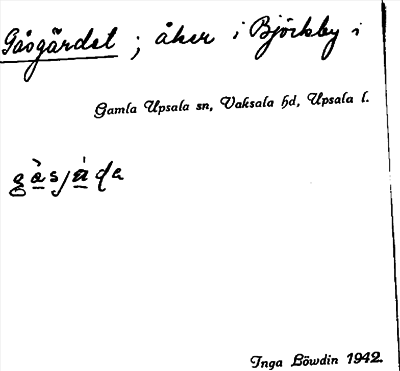 Gåsgärdet ; åker i Björkby i
Gamla Upsala sn, Vaksala hd, Upsala l.
gåsjäda
Inga Löwdin 1942.